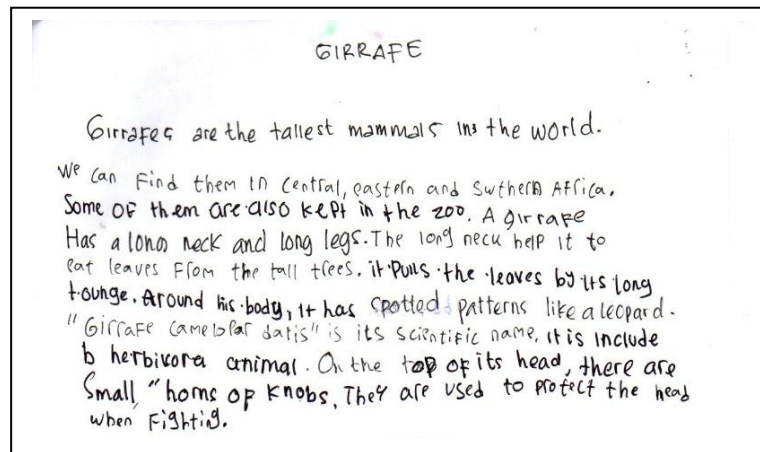 GIRRAFE
Girrafes are the tallest mammals in the world.
We can Find them in central, eastern and Swthern Africa.
Some of them are also kept in the zoo. A girrafe
Has a long neck and long legs. The long neck help it to
eat leaves From the tall trees. it Pulls the leaves by its long
tounge. Around his body, it has spotted patterns like a leopard.
"Girrafe camelopar datis" is its scientific name. it is include
b herbivora animal. On the top of its head, there are
Small "horns of knobs. They are used to protect the head
when Fighting.